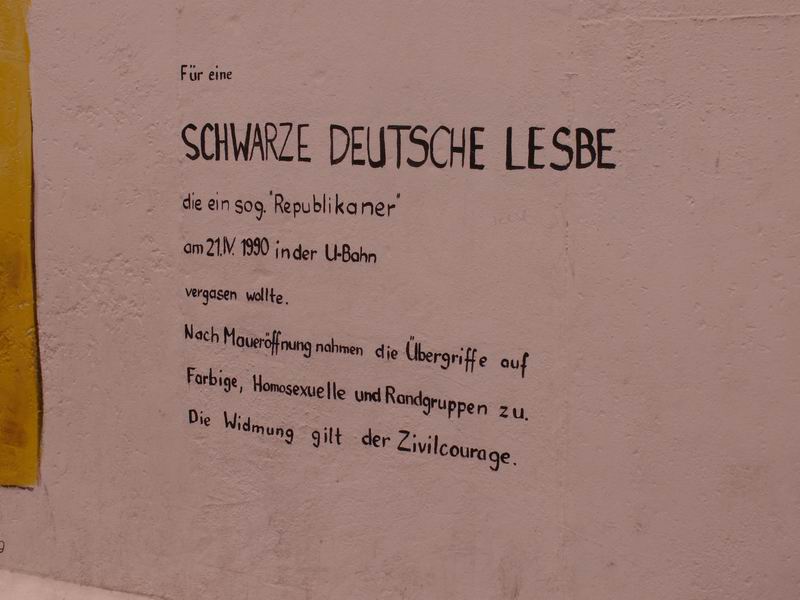 Für eine
SCHWARZE DEUTSCHE LESBE
die ein sog. "Republikaner"
am 21.IV. 1990 in der U-Bahn
vergasen wollte.
Nach Maueröffnung nahmen die Übergriffe auf
Farbige, Homosexuelle und Randgruppen zu.
Die Widmung gilt der Zivilcourage.